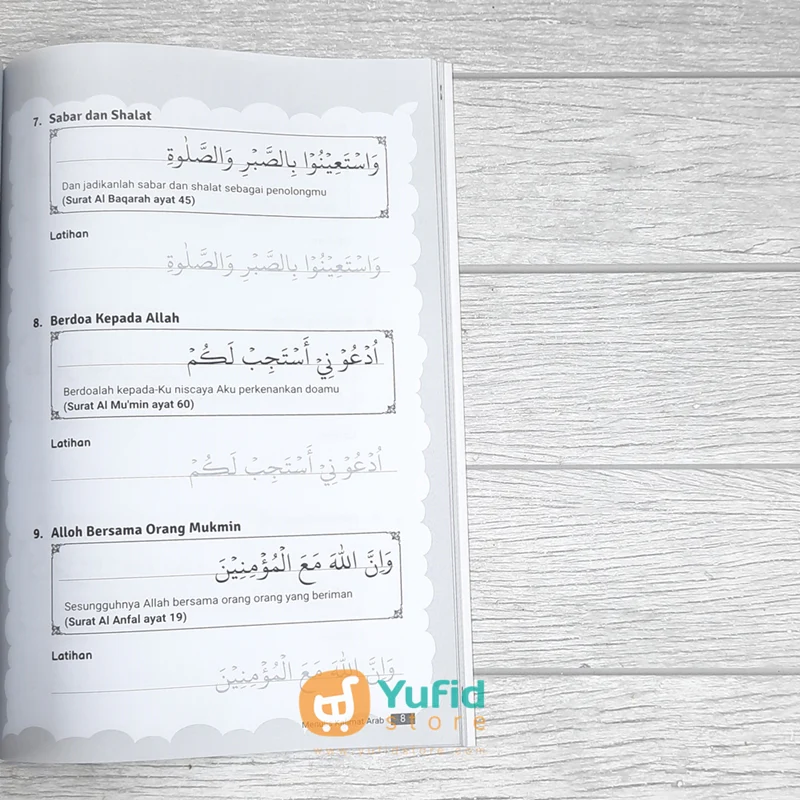 7. Sabar dan Shalat
وَاسْتَعِيْنُوْا بِالصَّبْرِ وَالصَّلٰوةِ
Dan jadikanlah sabar dan shalat sebagai penolongmu
(Surat Al Baqarah ayat 45)
Latihan
وَاسْتَعِيْنُوْا بِالصَّبْرِ وَالصَّلٰوةِ
8. Berdoa Kepada Allah
اُدْعُوْ نِيْ أَسْتَجِبْ لَكُمْ
Berdoalah kepada-Ku niscaya Aku perkenankan doamu
(Surat Al Mu'min ayat 60)
Latihan
اُدْعُوْ نِيْ أَسْتَجِبْ لَكُمْ
9. Alloh Bersama Orang Mukmin
وَاِنَّ اللهَ مَعَ الْمُؤْمِنِيْنَ
Sesungguhnya Allah bersama orang orang yang beriman
(Surat Al Anfal ayat 19)
Latihan
وَاِنَّ اللهَ مَعَ الْمُؤْمِنِيْنَ
Yufid
store
Arab 8